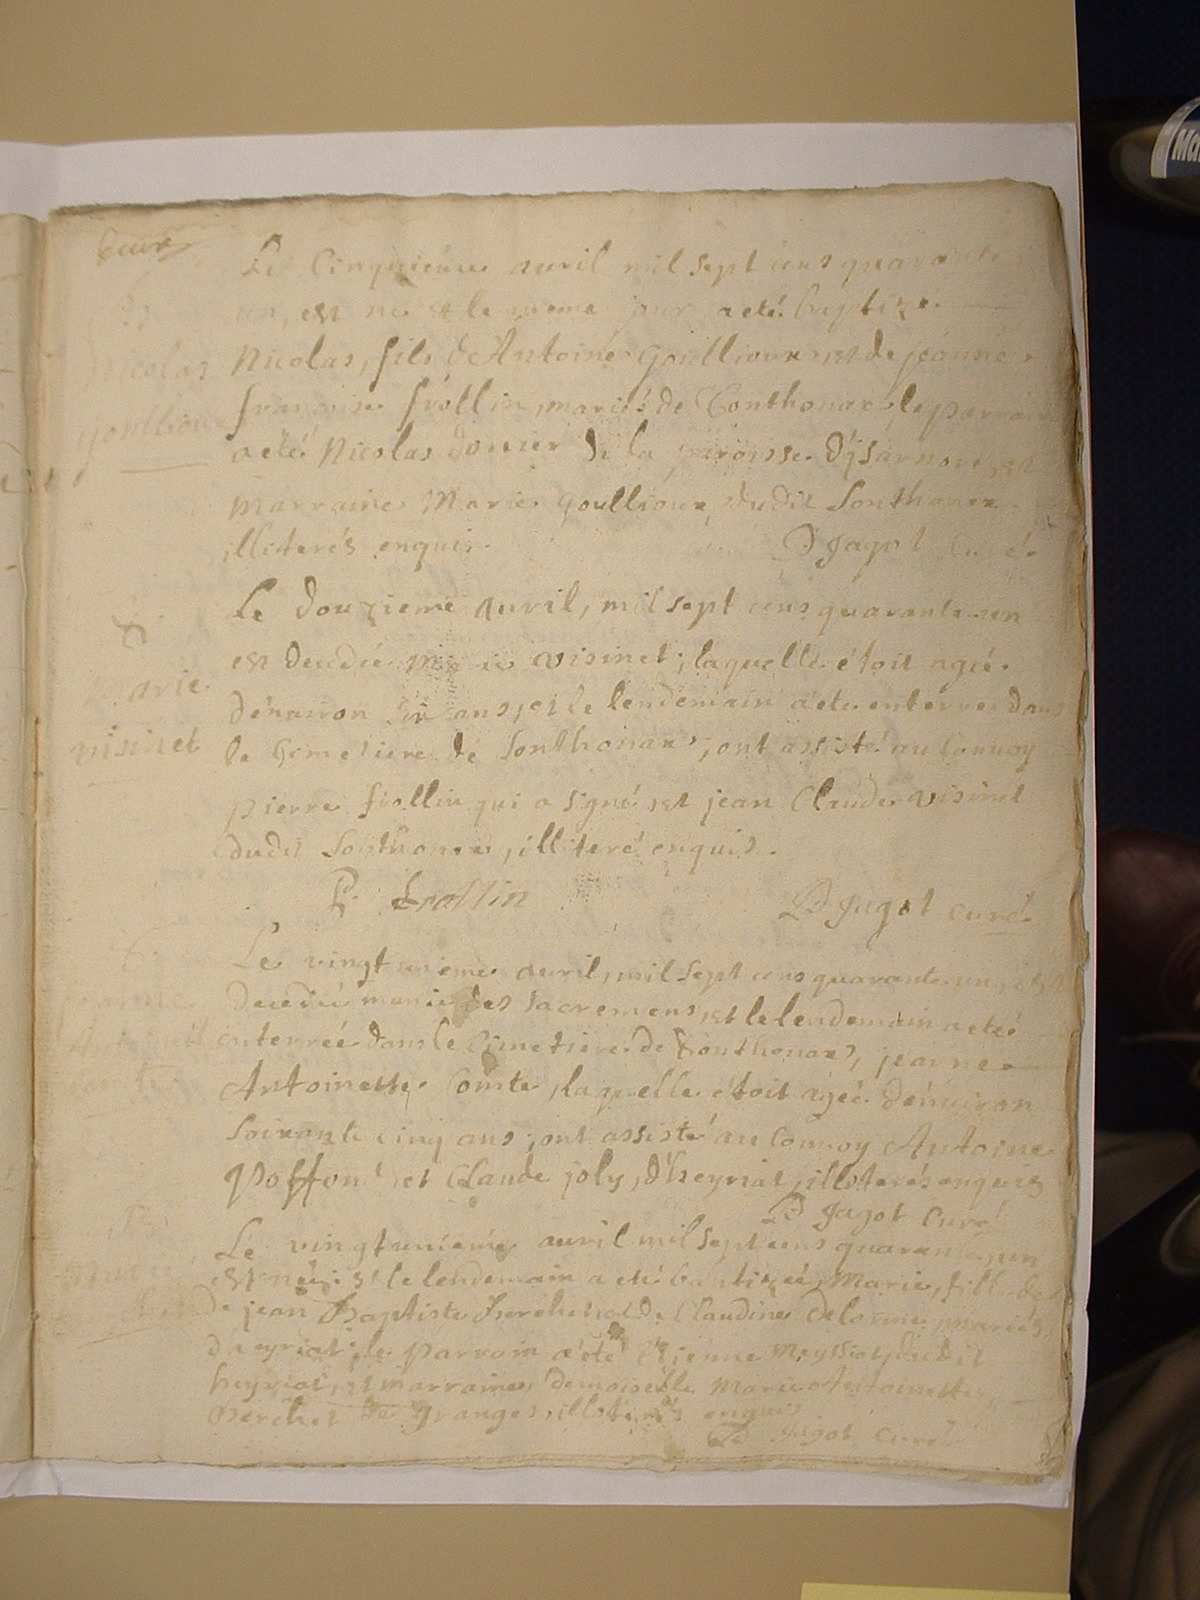 Le Cinquieme avril mil sept cens quarante
un, est né et le meme jour a eté baptizé
Nicolas
Nicolas, fils d'Antoine Goullioux et de jeanne
françoise frollin, mariés de Sonthonax, le parrain
Goullioux
a eté Nicolas de la paroisse d'jsarnore, et
marraine Marie Goullioux, dudit Sonthonax
illiterés enquis. Jagot Curé
Le douzieme avril, mil sept cens quarante un
est decedée Marie visinet, laquelle étoit agée
Marie
d'environ ans, et le lendemain a ete enterrée dans
visinet
le Cimetiere de Sonthonax, ont assisté au Convoy
pierre frollin qui a signé et jean Claude visinet
dudit Sonthonax, illiteré enquis.
P. frollin Jagot curé
Le vingtunieme avril, mil sept cens quarante un, est
decedée munie des sacremens, et le lendemain a eté
enterrée dans le Cimetiere de Sonthonax, jeanne
Antoinette Comte, laquelle étoit agée d'environ
soixante cinq ans, ont assisté au Convoy Antoine
et Claude joly, d'heyriat, illiterés enquis
Jagot Curé
Le vingtunieme avril mil sept cens quarante un
est née et le lendemain a eté baptizée, Marie, fille de
de jean Baptiste et de Claudine delorme, mariés
d'heyriat, le parrain a été Etienne meyssiat, dudit
heyriat, et marraine, demoiselle Marie Antoinette
de Granges, illiterés enquis
Jagot Curé